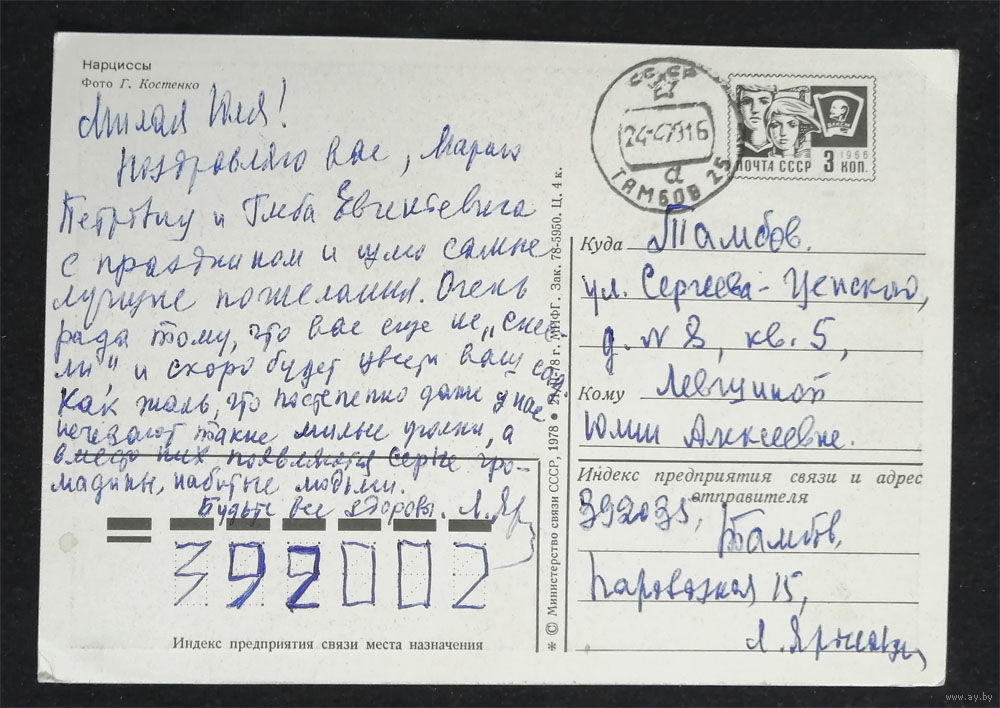 Нарциссы
Фото Г. Костенко
Милая Юля!
Поздравляю вас, Марию
Петровну и Глеба Евгеньевича
с праздником и шлю самые
лучшие пожелания. Очень
рада тому, что вас еще не „снес-
ли" и скоро будет цвести ваш сад.
Как жаль, что постепенно даже у нас
исчезают такие милые уголки, а
вместо них появляются серые гро-
мадины, набитые людьми.
Будьте все здоровы. Л. Яр
392002
Индекс предприятия связи места назначения
* © Министерство связи СССР, 1978 • 78 г. МПФГ. Зак. 78-5950. Ц. 4 к.
СССР
24-47916
а
ТАМБОВ 25
ВЛКСМ
1966
ПОЧТА СССР 3 КОП.
Куда Тамбов.
ул. Сергеева-Ценского,
д. № 8, кв. 5,
Кому Левшиной
Юлии Алексеевне.
Индекс предприятия связи и адрес
отправителя
392035,
Тамбов,
Паровозная 15,
Л.
www.ay.by